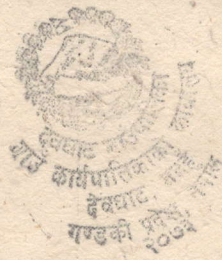 देवघाट गाउँपालिका
गाउँ कार्यपालिकाको कार्यालय
देवघाट
गण्डकी प्रदेश
२०७३